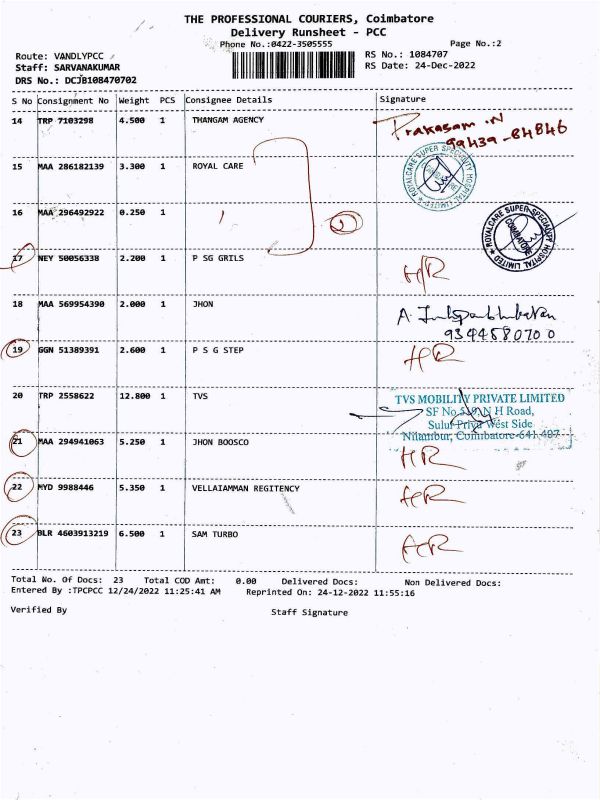 THE PROFESSIONAL COURIERS, Coimbatore
Delivery Runsheet - PCC
Phone No.:0422-3505555 Page No.:2
Route: VANDLYPCC RS No.: 1084707
Staff: SARVANAKUMAR RS Date: 24-Dec-2022
DRS No.: DCJB108470702
S No Consignment No Weight PCS Consignee Details Signature
14 TRP 7103298 4.500 1 THANGAM AGENCY
Prakasam .N
99439-84846
15 MAA 286182139 3.300 1 ROYAL CARE
ROYALCARE SUPER SPECIALITY HOSPITAL LIMITED
16 MAA 296492922 0.250 1
2
ROYALCARE SUPER SPECIALITY HOSPITAL LIMITED
COIMBATORE
17 NEY 50056338 2.200 1 P SG GRILS
18 MAA 569954390 2.000 1 JHON
19 GGN 51389391 2.600 1 P S G STEP
20 TRP 2558622 12.800 1 TVS
TVS MOBILITY PRIVATE LIMITED
N H Road,
Sulur Priva West Side
Nilambur, Coimbatore-641 407
21 MAA 294941063 5.250 1 JHON BOOSCO
22 MYD 9988446 5.350 1 VELLAIAMMAN REGITENCY
23 BLR 4603913219 6.500 1 SAM TURBO
Total No. Of Docs: 23 Total COD Amt: 0.00 Delivered Docs: Non Delivered Docs:
Entered By :TPCPCC 12/24/2022 11:25:41 AM Reprinted On: 24-12-2022 11:55:16
Verified By Staff Signature